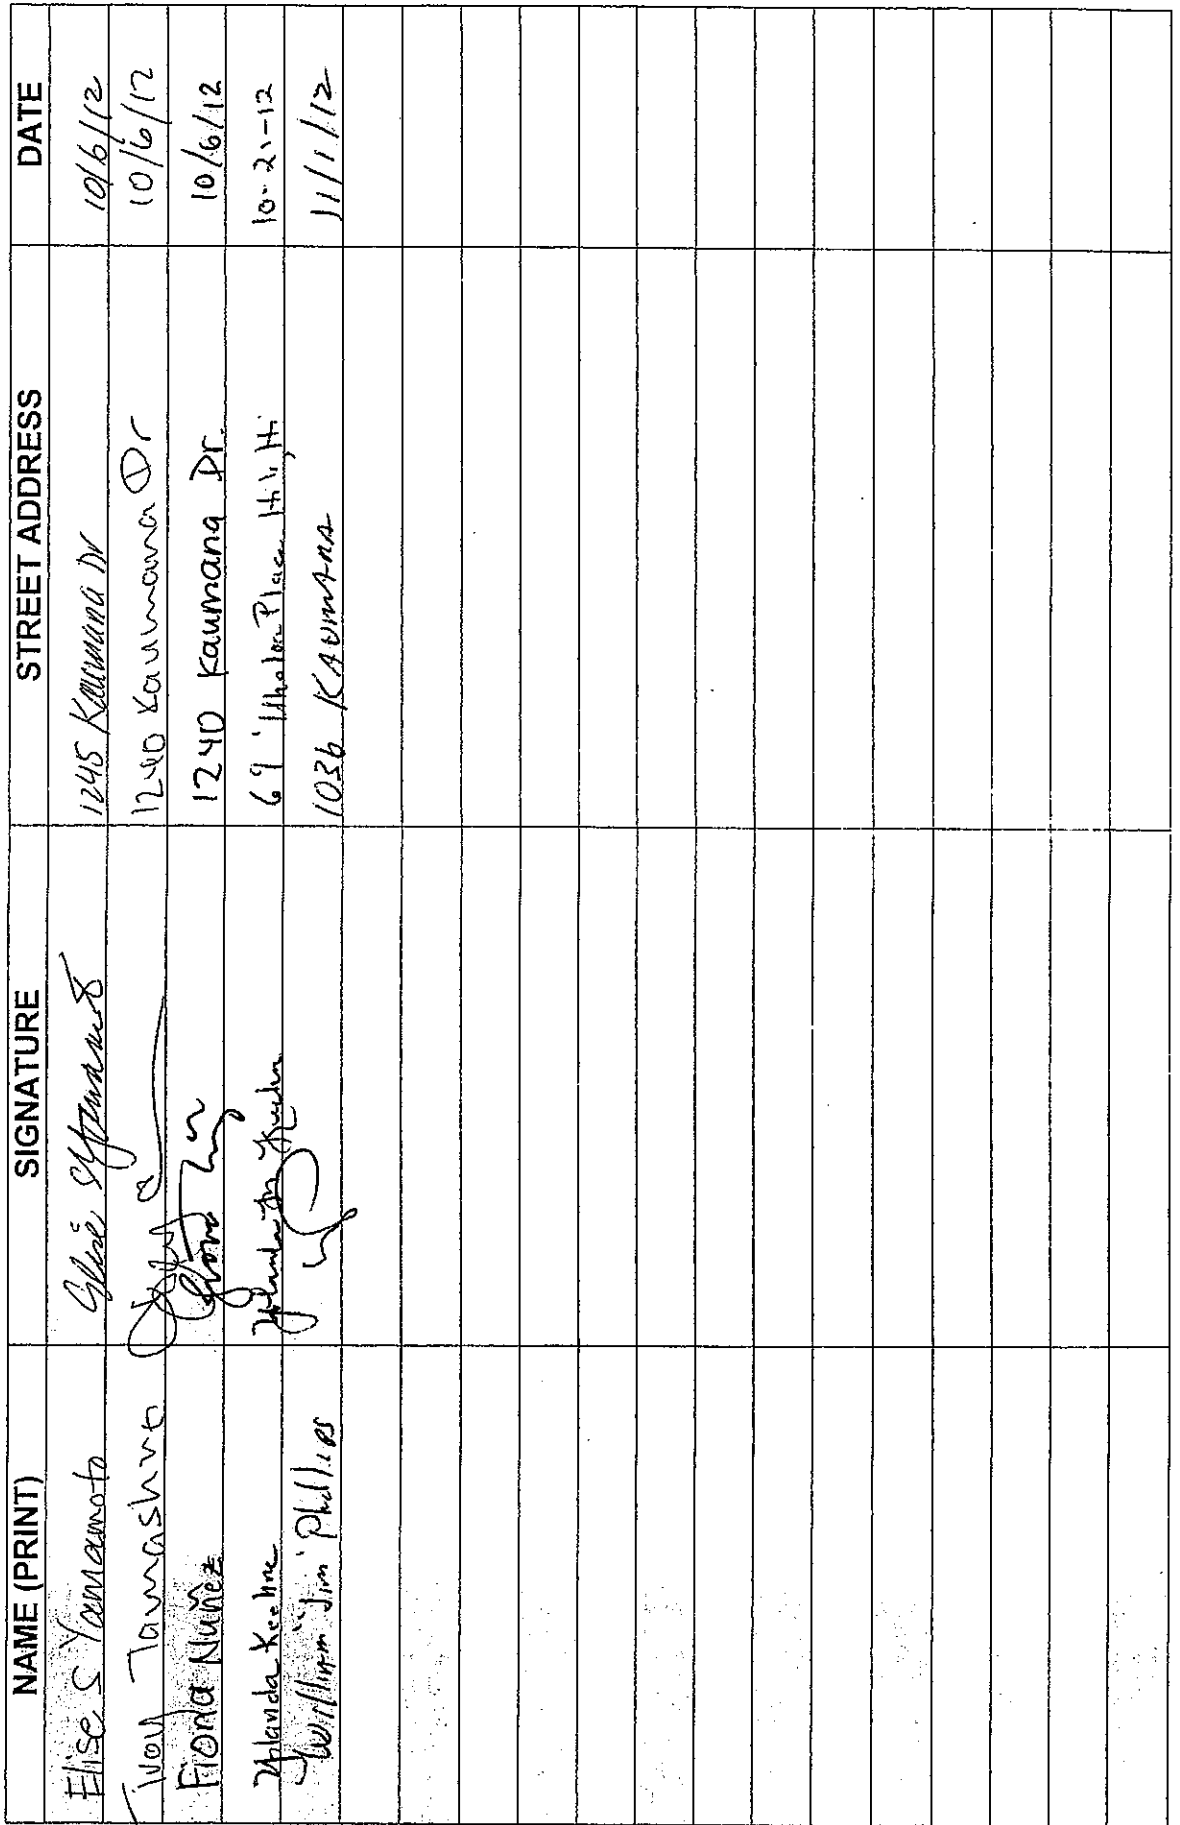 NAME (PRINT) SIGNATURE STREET ADDRESS DATE
Elise S Yamamoto Elise S Yamamoto 1245 Kaumana Dr 10/6/12
Troy Tamashiro 1240 Kaumana Dr 10/6/12
Fiona Nuñez 1240 Kaumana Dr. 10/6/12
Yolanda Keehne Yolanda Keehne 69 Place Hilo, Hi 10-21-12
William "Jim" Phillips 1036 KAUMANA 11/1/12